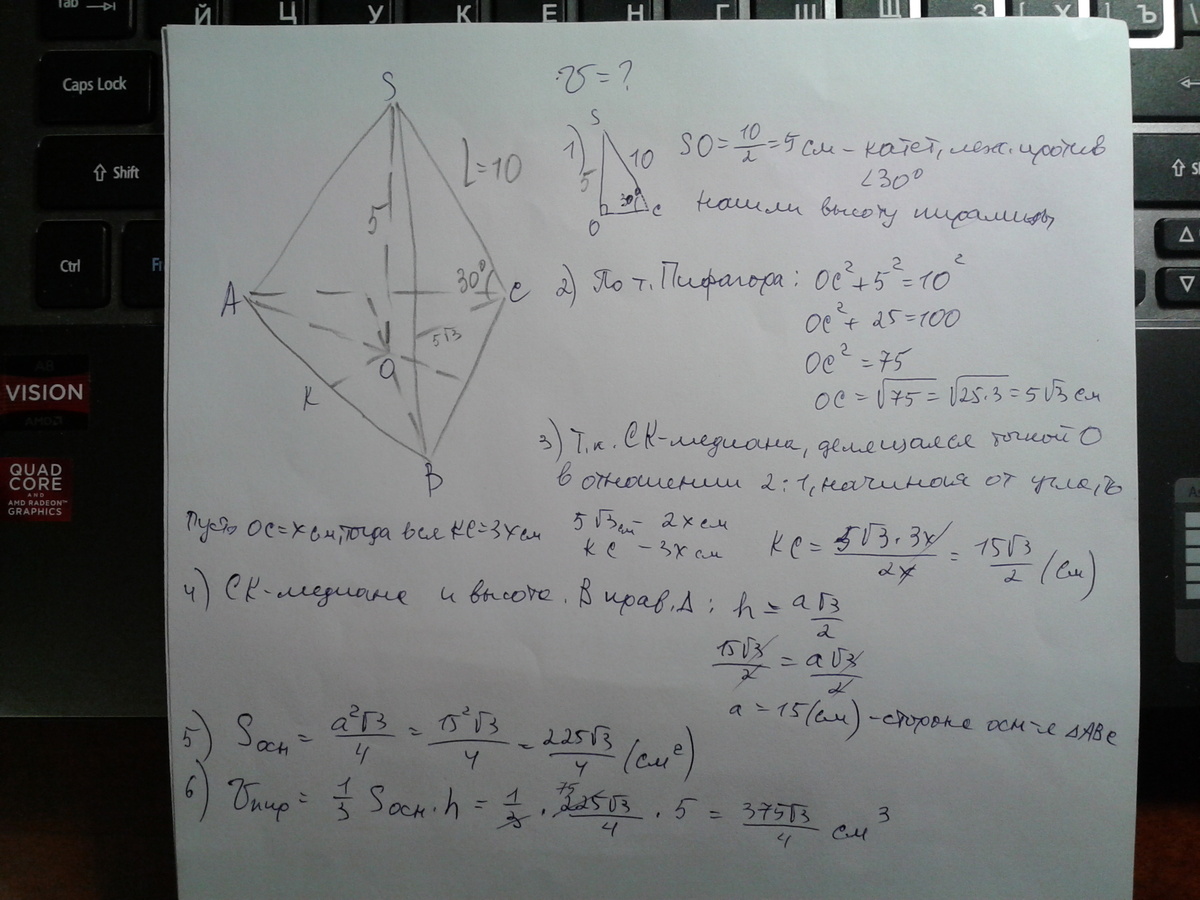 Tab
Й Ц У К Е Н Г Ш Щ З Х Ъ
Caps Lock
Shift
Ctrl
Fn
VISION
AMD
QUAD
CORE
AND
AMD RADEON™
GRAPHICS
S
L=10
5
30°
A
C
5√3
O
K
B
V = ?
1) S 10 5 30° O C
SO = 10/2 = 5 см – катет, леж. против
∠30°
Нашли высоту пирамиды
2) По т. Пифагора: OC² + 5² = 10²
OC² + 25 = 100
OC² = 75
OC = √75 = √25·3 = 5√3 см
3) Т.к. СК-медиана, делящаяся точкой О
в отношении 2:1, начиная от угла, то
Пусть OC = x см, тогда вся KC = 3x см
5√3 см – 2x см
KC – 3x см
KC = 5√3 · 3x / 2x = 15√3/2 (см)
4) СК-медиана и высота. В прав. Δ: h = a√3/2
15√3/2 = a√3/2
a = 15 (см) – сторона осн-я ΔABC
5) Sосн = a²√3/4 = 15²√3/4 = 225√3/4 (см²)
6) Vпир = 1/3 Sосн · h = 1/3 · 225√3/4 · 5 = 375√3/4 см³
75